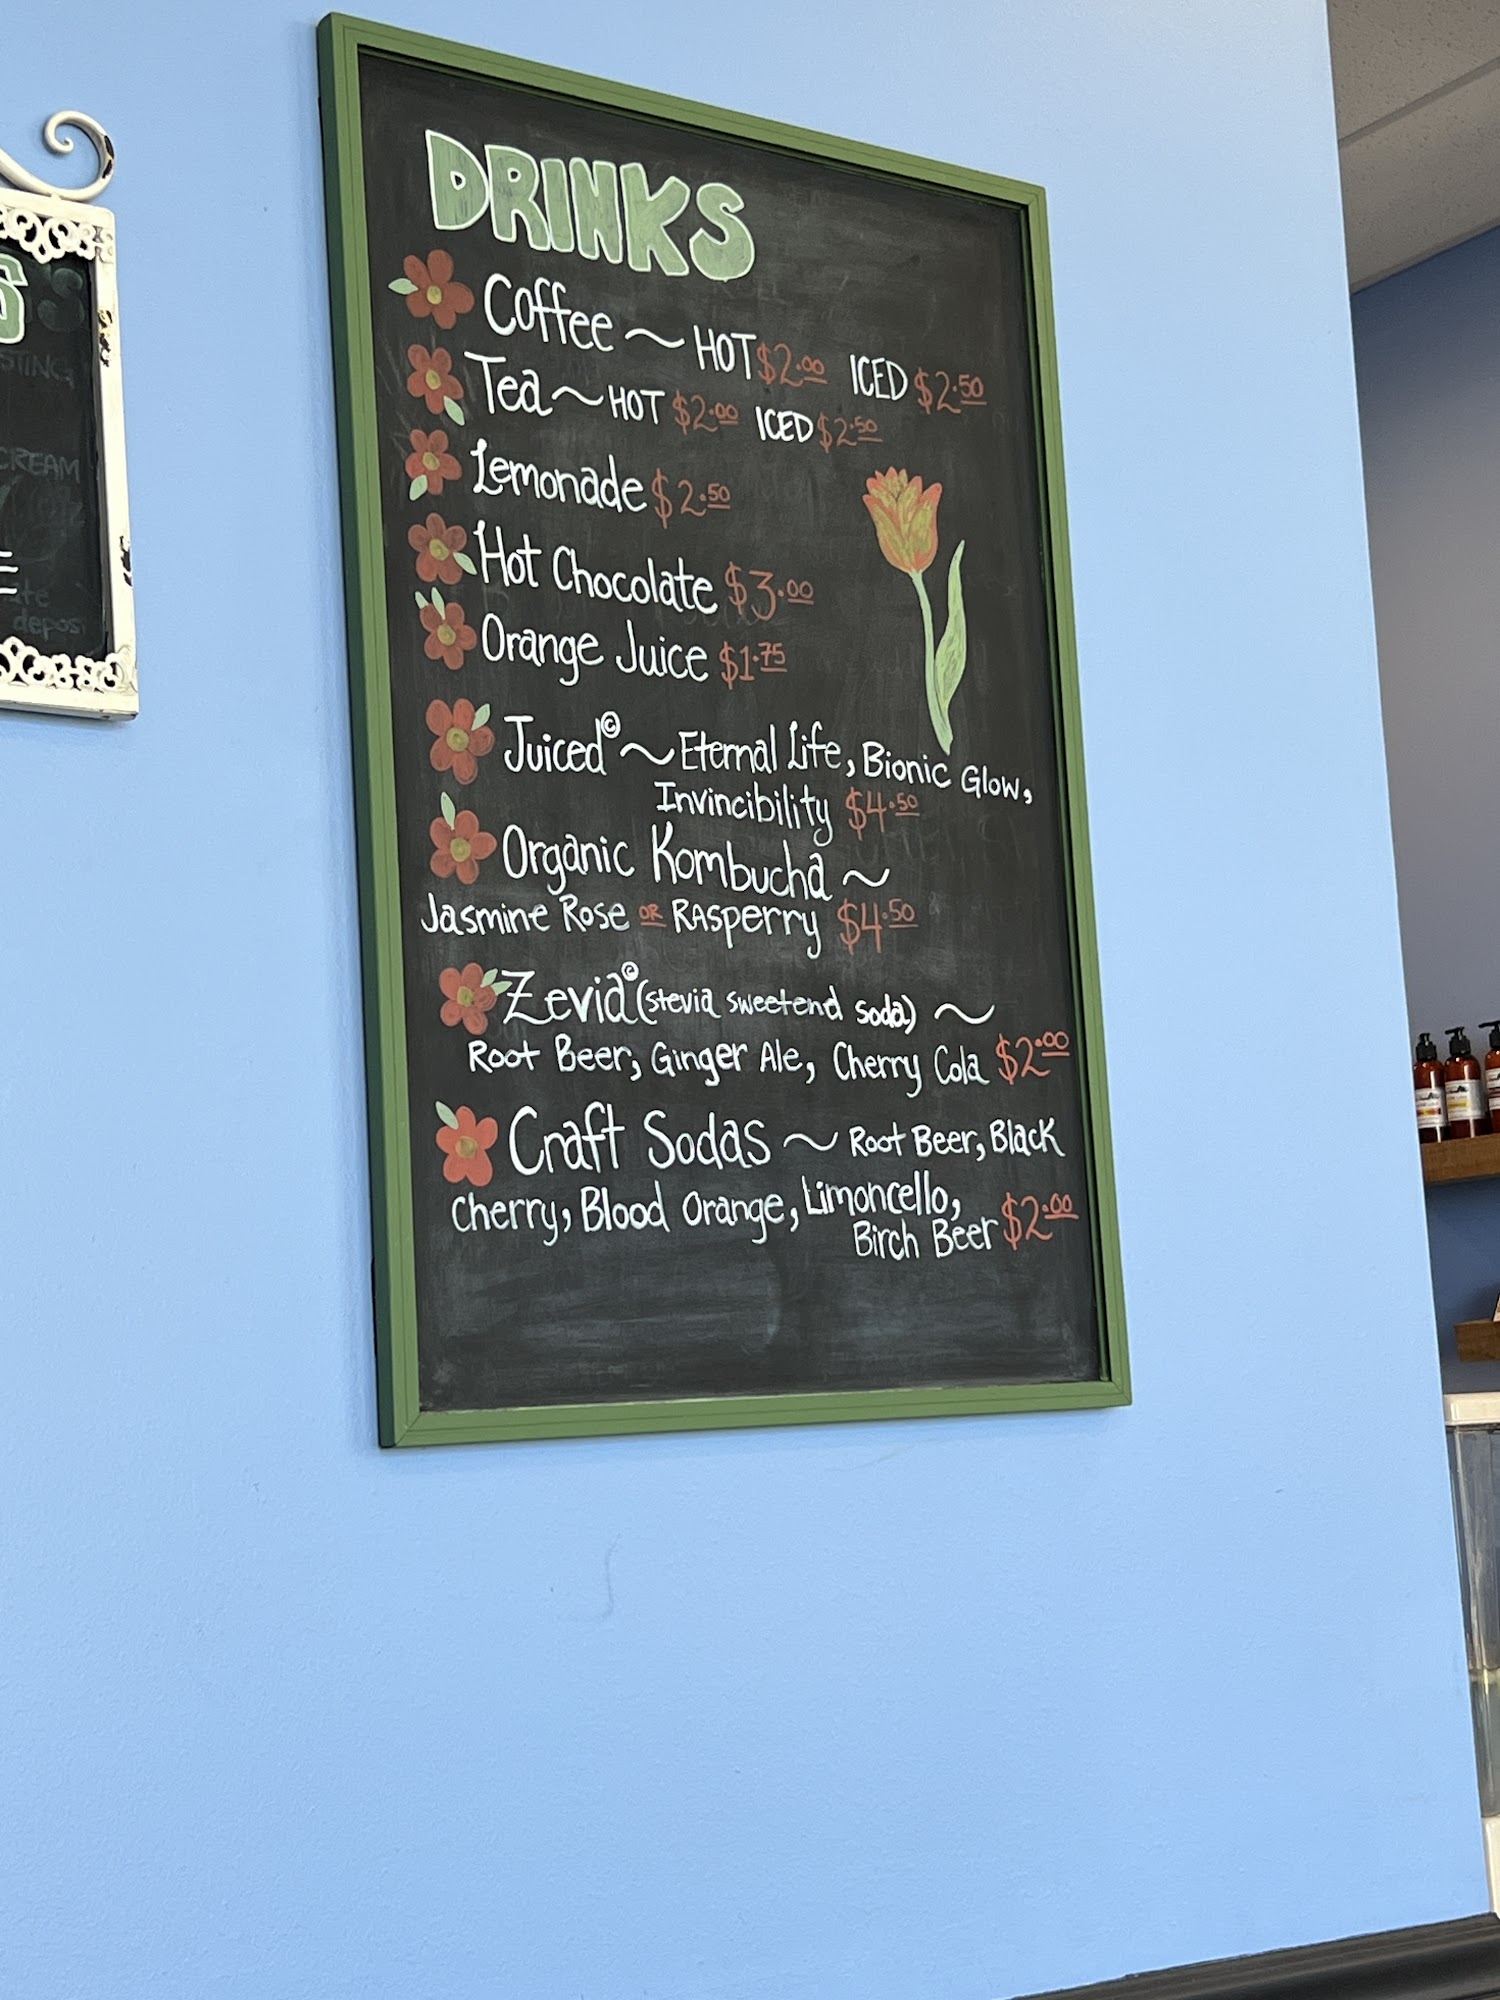 DRINKS
Coffee ~ HOT $2.00 ICED $2.50
Tea ~ HOT $2.00 ICED $2.50
Lemonade $2.50
Hot Chocolate $3.00
Orange Juice $1.75
Juiced© ~ Eternal Life, Bionic Glow,
Invincibility $4.50
Organic Kombucha ~
Jasmine Rose OR Rasperry $4.50
Zevia© (stevia sweetend soda) ~
Root Beer, Ginger Ale, Cherry Cola $2.00
Craft Sodas ~ Root Beer, Black
Cherry, Blood Orange, Limoncello,
Birch Beer $2.00
S
STING
CREAM
deposi